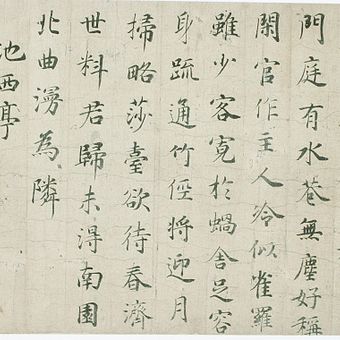 門庭有水巷無塵好稱
閑官作主人冷似雀羅
雖少客寛於蝸舍足容
身疏通竹徑将迎月
掃略莎臺欲待春濟
世料君歸未得南園
北曲漫為隣
池西亭